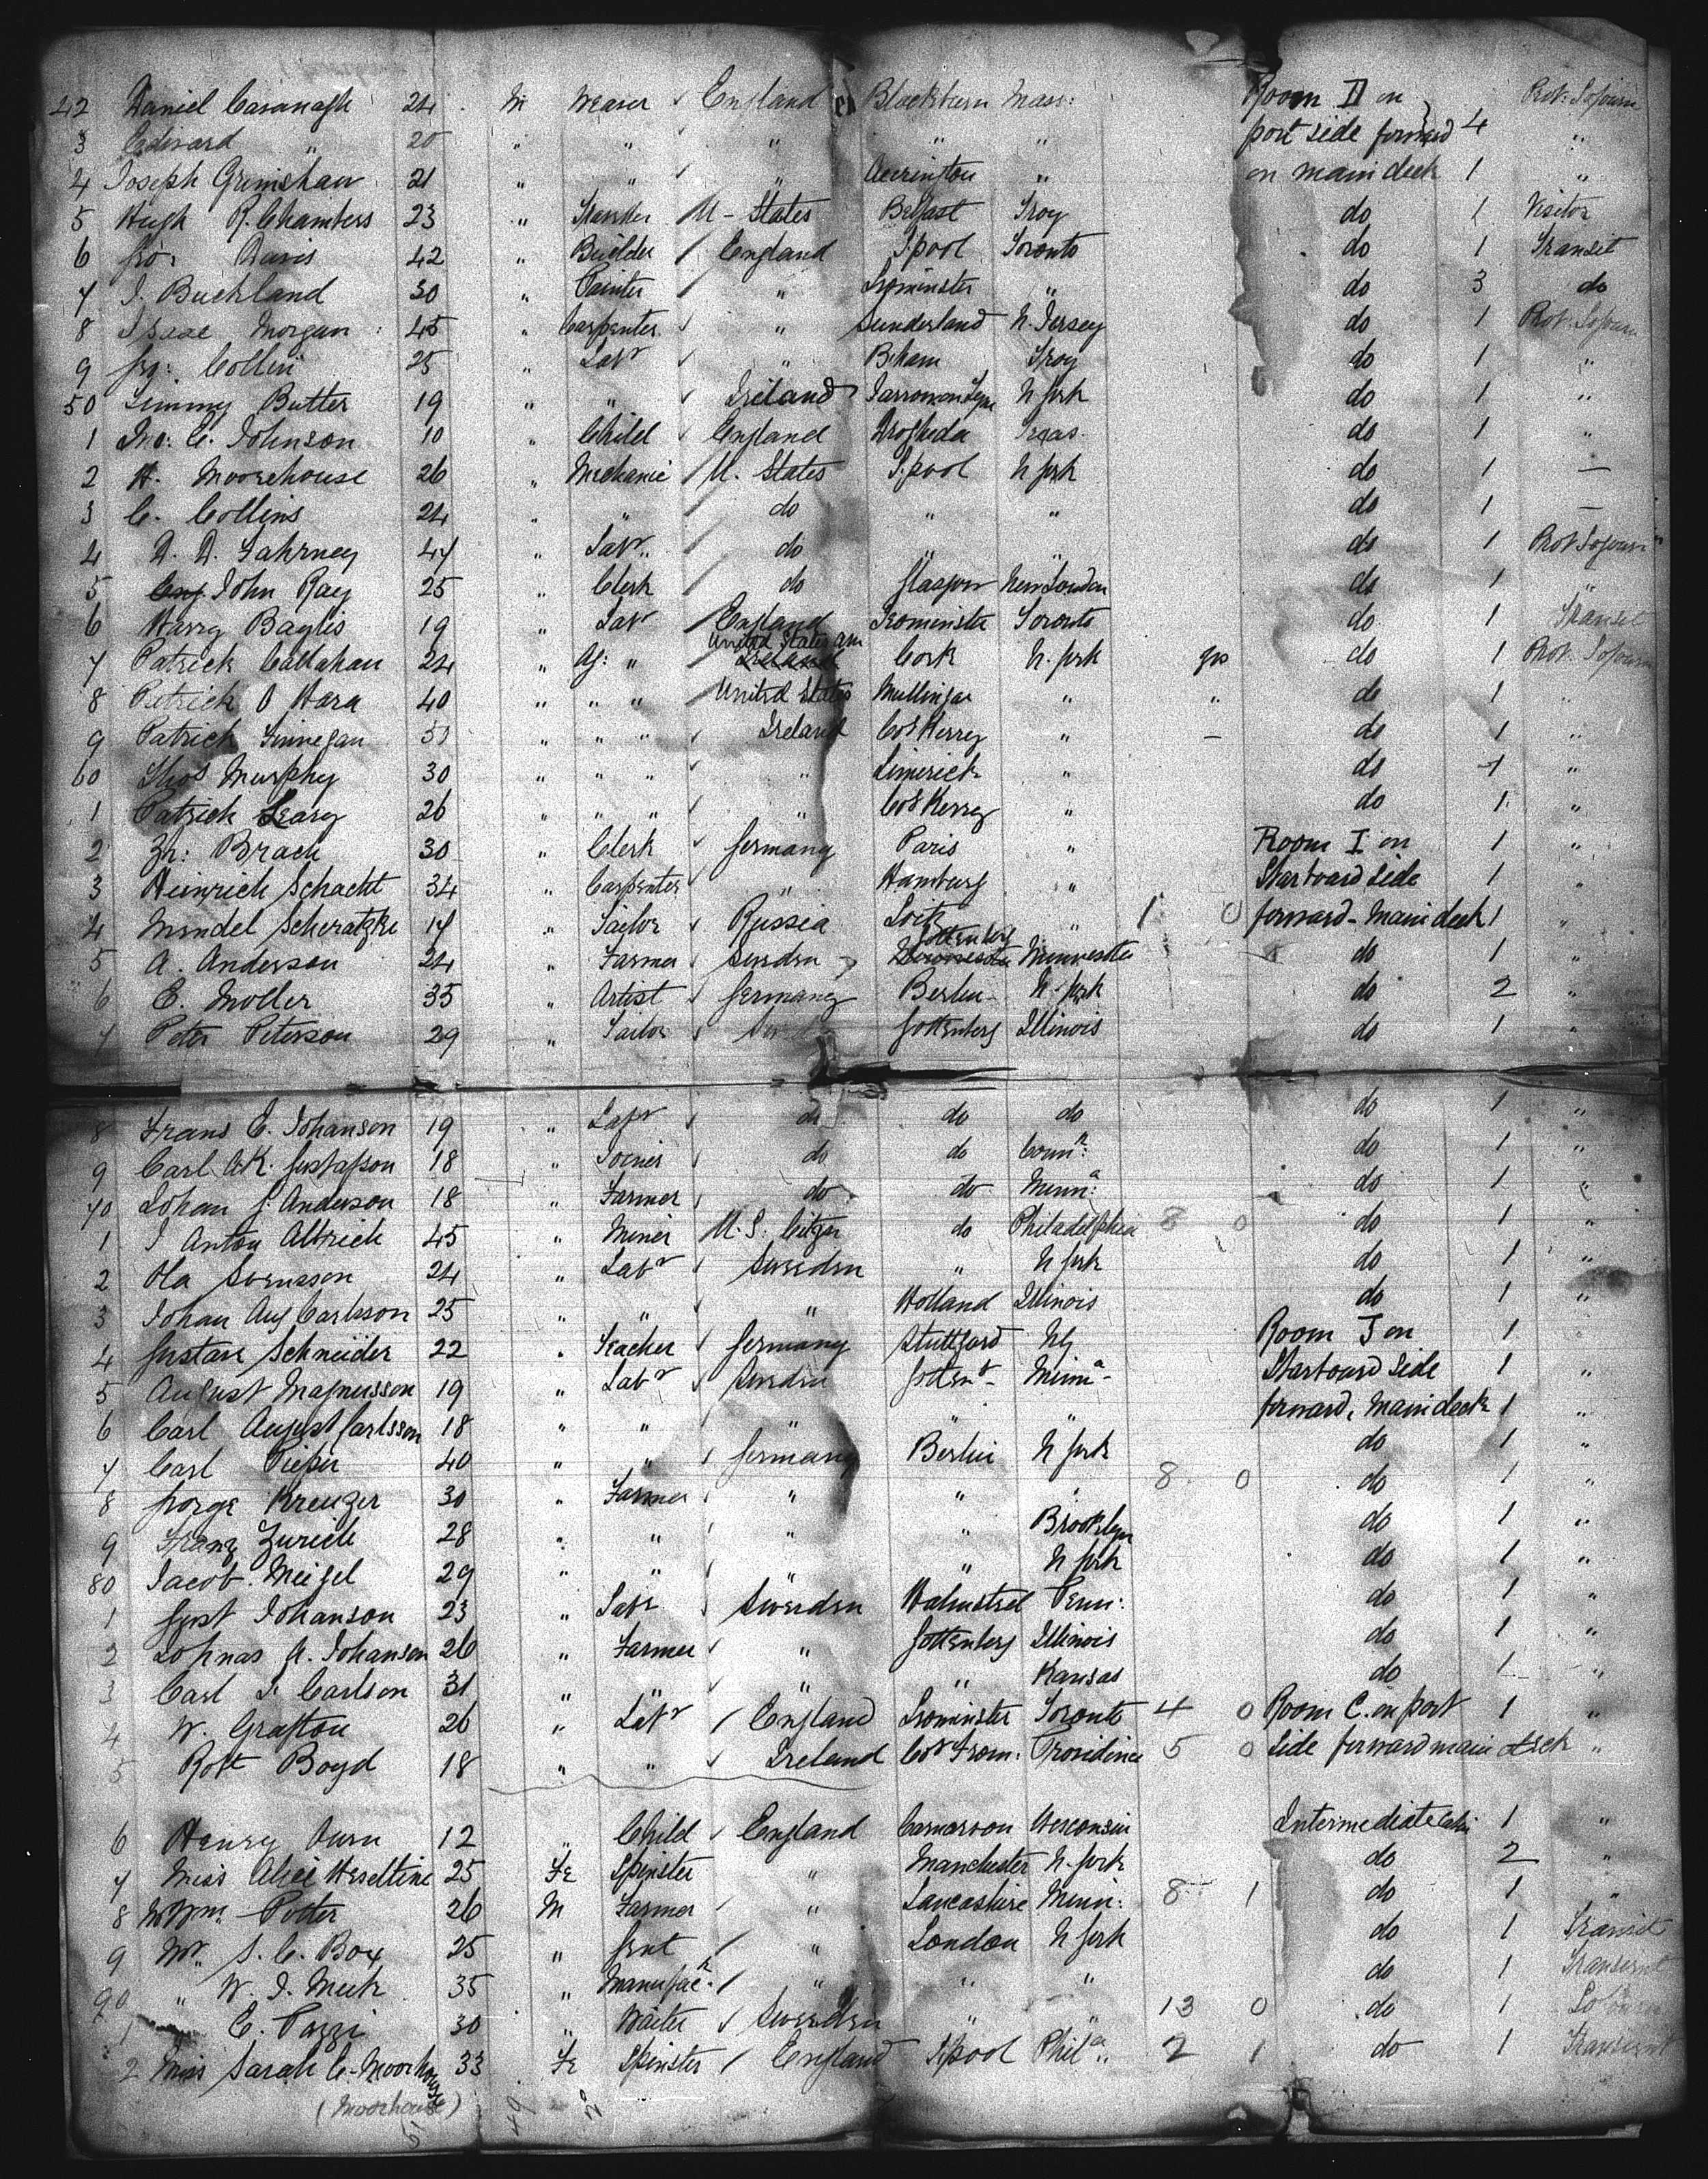 42 Daniel Cavanagh 24 M Weaver England Blackburn Mass: Room D on Prot: Sojourn
3 Edward " 20 " " " " " port side forward 4 "
4 Joseph Grimshaw 21 " " " Accrington " on main deck 1 "
5 Hugh R. Chambers 23 " U-States Belfast Troy do 1 Visitor
6 Davis 42 " Builder England L'pool Toronto do 1 Transit
7 J. Buckland 30 " Painter " Leominster " do 3 do
8 Isaac Morgan 45 " Carpenter " Sunderland N. Jersey do 1 Prot: Sojourn
9 Collin 25 " Labr " B'ham Troy do 1 "
50 Jimmy Butter 19 " " Ireland N York do 1 "
1 Jno: C. Johnson 10 " Child England Drogheda do 1 "
2 H. Moorehouse 26 " Mechanic U. States L'pool N York do 1 —
3 C. Collins 24 " " do " " do 1 —
4 D. D. Fahrney 47 " Labr do " " do 1 Prot Sojourn
5 John Ray 25 " Clerk do Glasgow New London do 1 "
6 Harry Baylis 19 " Labr England Leominster Toronto do 1 Transit
7 Patrick Callahan 24 " Ag: " United States Am Ireland Cork N. York do 1 Prot: Sojourn
8 Patrick O Hara 40 " " " United States Mullingar " " do 1 "
9 Patrick Finnegan " " " Ireland Cot Kerry " – do 1 "
60 Thos Murphy 30 " " " " Limerick " do 1 "
1 Patrick Leary 26 " " " " Cot Kerry " do 1 "
2 Fr: Brach 30 " Clerk Germany Paris " Room I on 1 "
3 Heinrich Schacht 34 " Carpenter " Hamburg " Starboard side 1 "
4 Mendel Scheratzki 17 " Tailor Russia " 1 0 forward - Main deck 1 "
5 A. Anderson 24 " Farmer Sweden Gottenberg Minnesota do 1 "
6 E. Moller 35 " Artist Germany Berlin N. York do 2 "
7 Peter Peterson 29 " Tailor Gottenberg Illinois do 1 "
8 Frans E. Johanson 19 " Labr do do do do 1 "
9 Carl A.K. Gustafson 18 " Joiner do do Conn: do 1 "
70 Johan G. Anderson 18 " Farmer do do Minna: do 1 "
1 J Anton Albrich 45 " Miner U.S. Citizen do Philadelphia 8 0 do 1 "
2 Ola Svensson 24 " Labr Sweden " N York do 1 "
3 Johan Aug Carlsson 25 " " " Holland Illinois do 1 "
4 Gustave Schneider 22 " Teacher Germany Stuttgard NY Room J on 1 "
5 August Magnusson 19 " Labr Sweden Gottenb- Minna- Starboard side 1 "
6 Carl August Carlsson 18 " " " " " forward, Main deck 1 "
7 Carl Pieper 40 " " Germany Berlin N York do 1 "
8 George Kreuzer 30 " Farmer " " " 8 0 do 1 "
9 Franz Zurich 28 " " " " Brooklyn do 1 "
80 Jacob Meigel 29 " " " " N York do 1 "
1 Gust Johanson 23 " Labr Sweden Halmsted Penn: do 1 "
2 Johnas A. Johanson 26 " Farmer " Gottenberg Illinois do 1 "
3 Carl F Carlson 31 " " " " Kansas do 1 "
4 W. Grafton 26 " Labr England Leominster Toronto 4 0 Room C. on port 1 "
5 Robt Boyd 18 " " Ireland Providence 5 0 side forward main deck "
6 Henry Owen 12 " Child England Carnarvon Wisconsin Intermediate Cabin 1 "
7 Miss Alice Heseltine 25 Fe Spinster " Manchester N. York do 2 "
8 Mr Wm. Potter 26 M Farmer " Lancashire Minn: 8 1 do 1 "
9 Mr. S. C. Box 25 " Gent " London N York do 1 Transit
90 " W. J. Meek 35 " Manufacr. " " " do 1 Transient
1 E. Pozzi 30 " Waiter Sweden " " 13 0 do 1
2 Miss Sarah C. Moorhouse 33 Fe Spinster England L'pool Phila. 2 1 do 1 Transient
(Moorhouse)